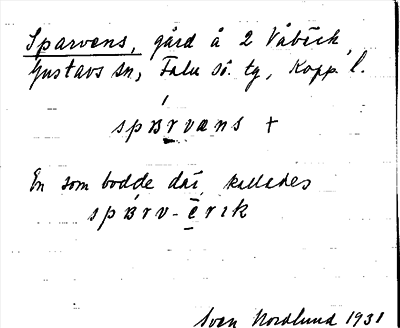 Sparvens, gård å 2 Våbäck,
Gustavs sn, Falu sö. tg, Kopp. l.
spɒrvæns +
En som bodde där kallades
spɒrv-ērɪk
Sven Nordlund 1931